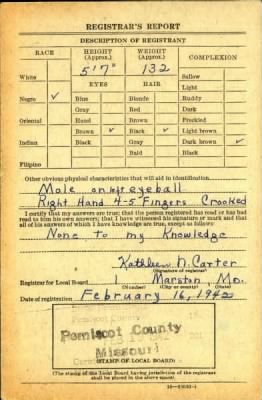 REGISTRAR'S REPORT
DESCRIPTION OF REGISTRANT
RACE HEIGHT (Approx.) WEIGHT (Approx.) COMPLEXION
5'7" 132
White Sallow
EYES HAIR Light
Negro ✓ Blue Blonde Ruddy
Gray Red Dark
Oriental Hazel Brown Freckled
Brown ✓ Black ✓ Light brown
Indian Black Gray Dark brown ✓
Bald Black
Filipino
Other obvious physical characteristics that will aid in identification
Mole on eyeball
Right Hand 4-5 Fingers Crooked
I certify that my answers are true; that the person registered has read or has had
read to him his own answers; that I have witnessed his signature or mark and that
all of his answers of which I have knowledge are true, except as follows:
None to my Knowledge
Kathleen D. Carter
(Signature of registrar)
Registrar for Local Board 1 Marston, Mo.
(Number) (City or county) (State)
Date of registration February 16, 1942
Pemiscot County
Missouri
(STAMP OF LOCAL BOARD)
(The stamp of the Local Board having jurisdiction of the registrant
shall be placed in the above space.)